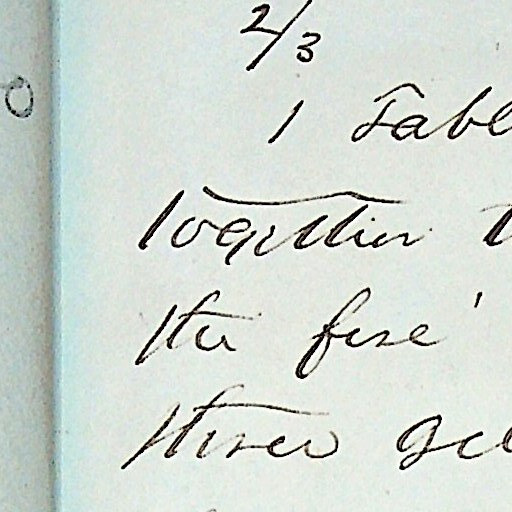 2/3
1 Tabl
together t
the fire
three